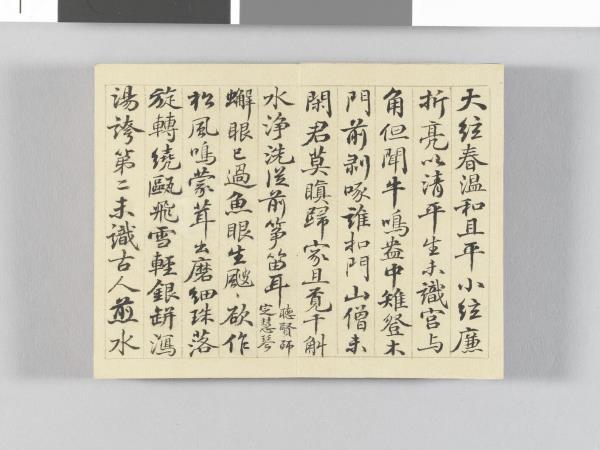 大絃春温和且平小絃廉
折亮以清平生未識宮与
角但聞牛鳴盎中雉登木
門前剥啄誰扣門山僧未
閑君莫瞋歸家且覓千斛
水浄洗從前箏笛耳
聴賢師
定慧琴
蠏眼已過魚眼生颼〻欲作
松風鳴蒙茸出磨細珠落
旋轉繞甌飛雪輕銀缾瀉
湯誇第二未識古人煎水